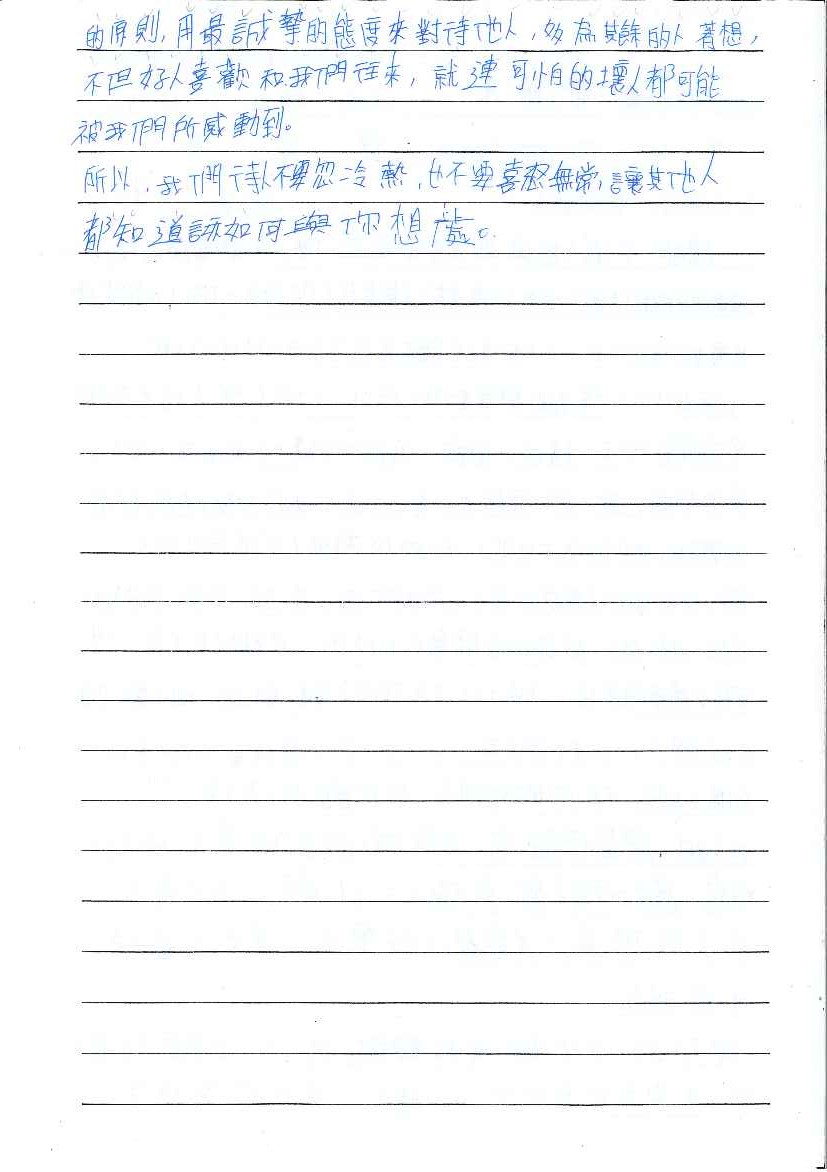 的原則,用最誠摯的態度來對待他人,多為其餘的人著想,
不但好人喜歡和我們往來,就連可怕的壞人都可能
被我們所感動到。
所以,我們待人不要忽冷熱,也不要喜怒無常,讓其他人
都知道該如何與你想處。